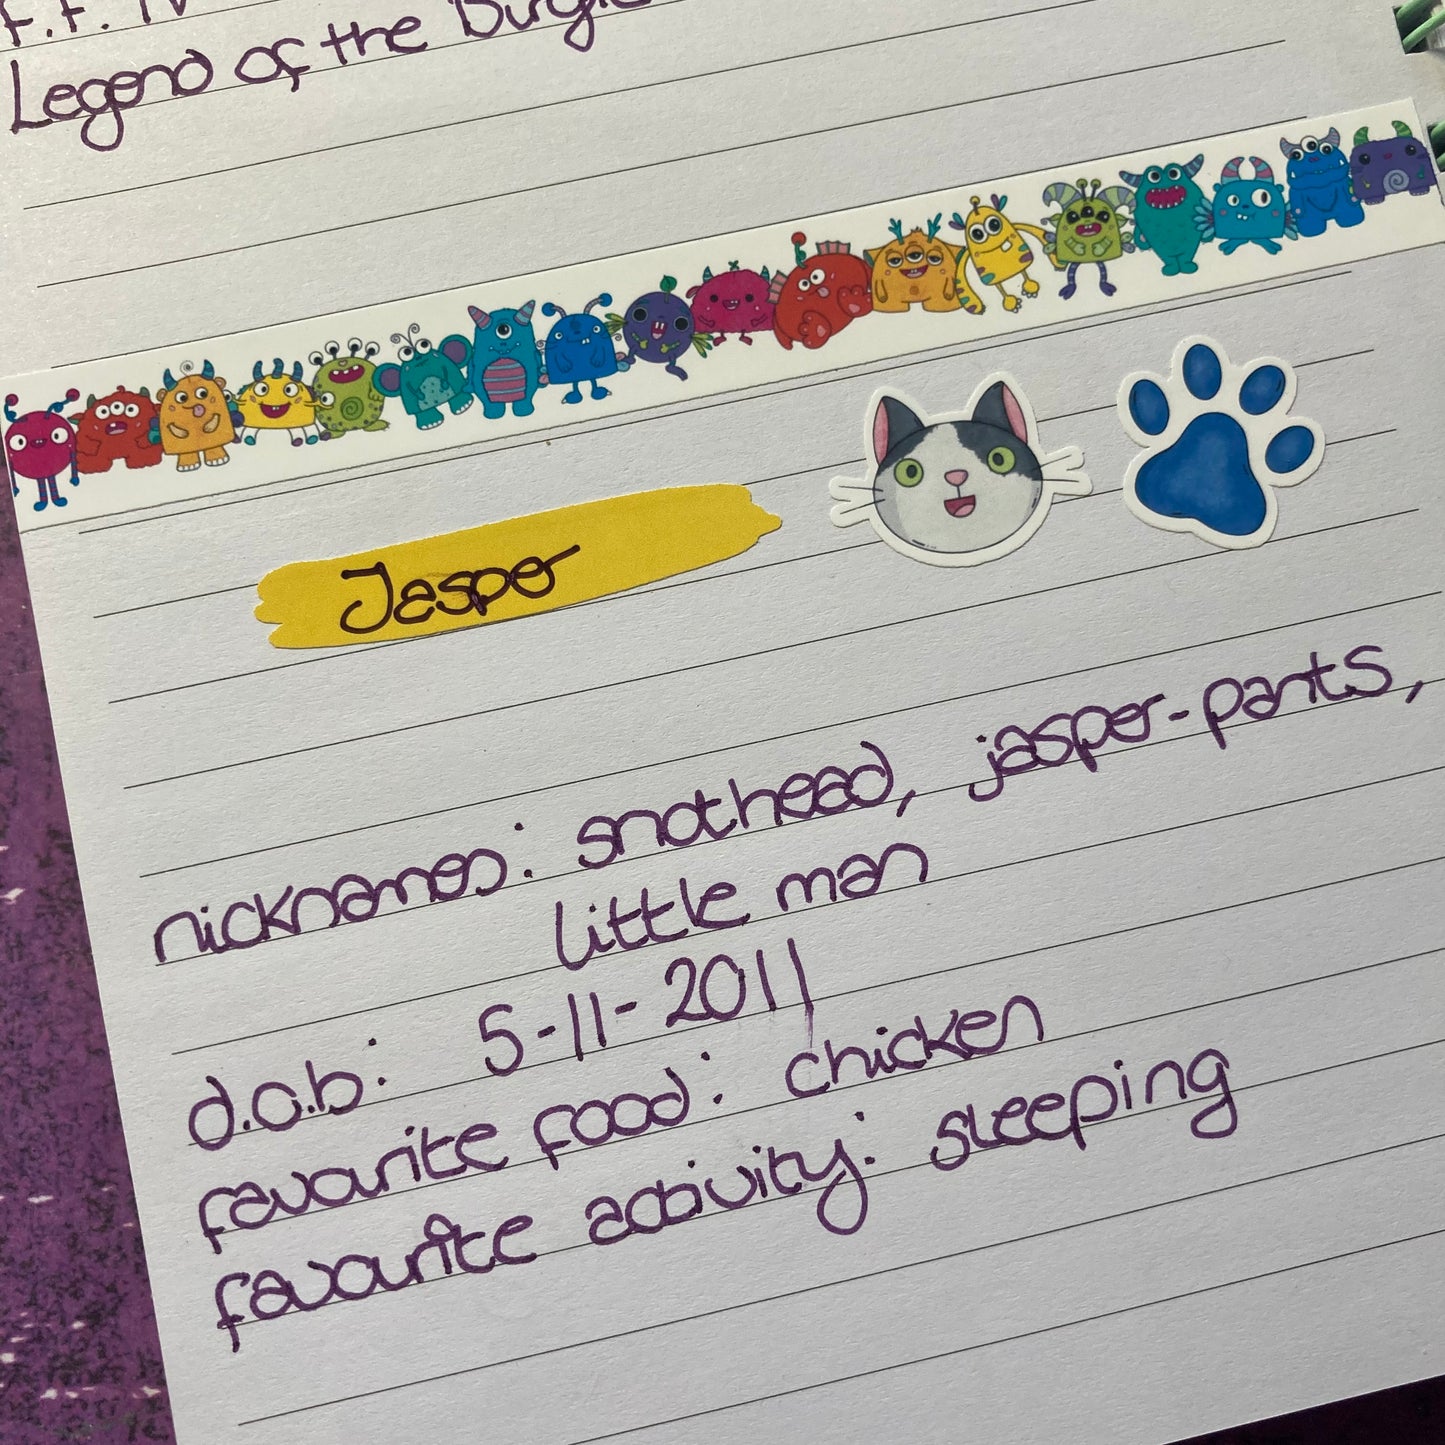 Legend of the
Jasper
nicknames: snothead, jasper-pants,
little man
d.o.b: 5-11-2011
favourite food: chicken
favourite activity: sleeping